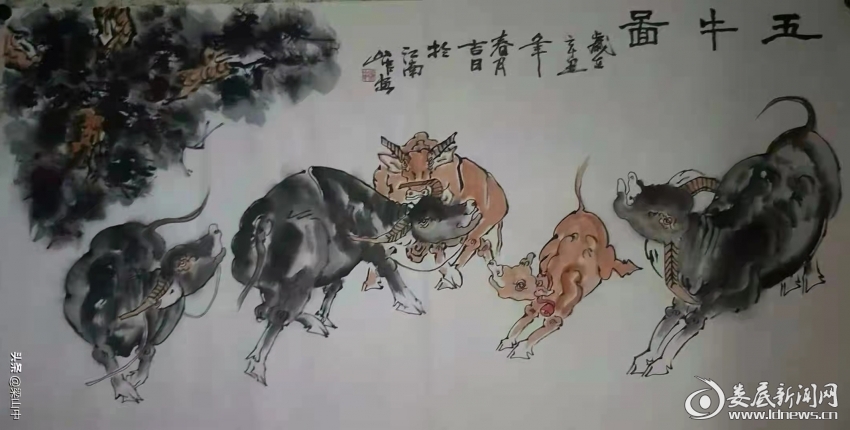 五牛啚
歲在
辛丑
年
春月
吉日
於
江南
头条 @梁山中
娄底新闻网
www.ldnews.cn